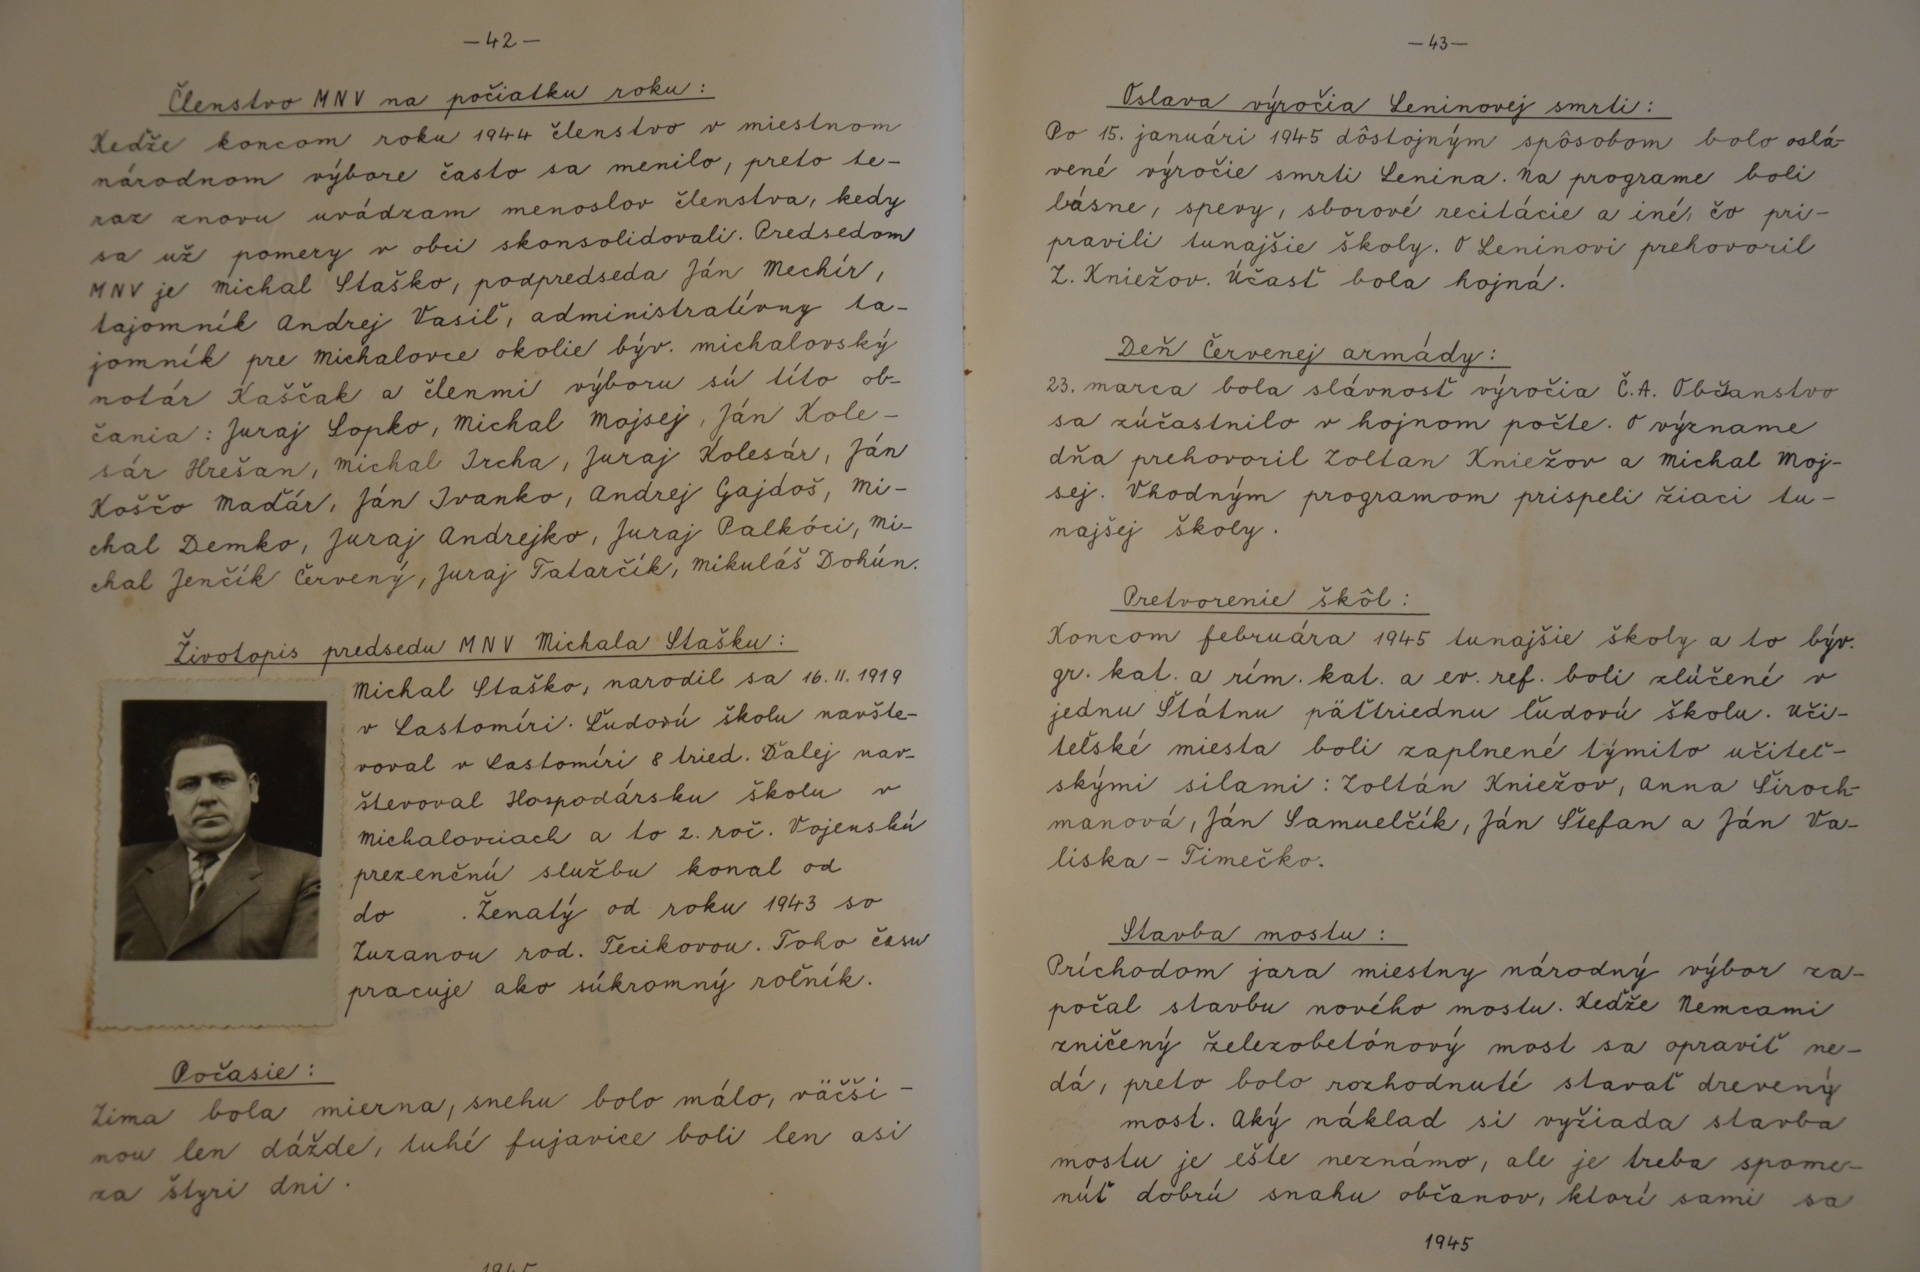 —42—
Členstvo MNV na počiatku roku:
Keďže koncom roku 1944 členstvo v miestnom
národnom výbore často sa menilo, preto te-
raz znovu uvádzam menoslov členstva, kedy
sa už pomery v obci skonsolidovali. Predsedom
MNV je Michal Staško, podpredseda Ján Mechír,
tajomník Andrej Vasiľ, administratívny ta-
jomník pre Michalovce okolie býv. michalovský
notár Kaščak a členmi výboru sú títo ob-
čania: Juraj Lopko, Michal Mojsej, Ján Kole-
sár Hrešan, Michal Ircha, Juraj Kolesár, Ján
Koščo Maďár, Ján Ivanko, Andrej Gajdoš, Mi-
chal Demko, Juraj Andrejko, Juraj Palkóci, Mi-
chal Jenčík Červený, Juraj Tatarčík, Mikuláš Dohún.
Životopis predsedu MNV Michala Stašku:
Michal Staško, narodil sa 16. II. 1919
v Lastomíri. Ľudovú školu navšte-
voval v Lastomíri 8 tried. Ďalej nav-
števoval Hospodársku školu v
Michalovciach a to 2. roč. Vojenskú
prezenčnú službu konal od
do . Ženatý od roku 1943 so
Zuzanou rod. Tecikovou. Toho času
pracuje ako súkromný roľník.
Počasie:
Zima bola mierna, snehu bolo málo, väčši-
nou len dážde, tuhé fujavice boli len asi
za štyri dni.
1945
—43—
Oslava výročia Leninovej smrti:
Po 15. januári 1945 dôstojným spôsobom bolo oslá-
vené výročie smrti Lenina. Na programe boli
básne, spevy, sborové recitácie a iné, čo pri-
pravili tunajšie školy. O Leninovi prehovoril
Z. Kniežov. Účasť bola hojná.
Deň Červenej armády:
23. marca bola slávnosť výročia Č.A. Občanstvo
sa zúčastnilo v hojnom počte. O význame
dňa prehovoril Zoltan Kniežov a Michal Moj-
sej. Vhodným programom prispeli žiaci tu-
najšej školy.
Pretvorenie škôl:
Koncom februára 1945 tunajšie školy a to býv.
gr. kat. a rím. kat. a ev. ref. boli zlúčené v
jednu Štátnu päťtriednu ľudovú školu. Uči-
teľské miesta boli zaplnené týmito učiteľ-
skými silami: Zoltán Kniežov, Anna Široch-
manová, Ján Samuelčík, Ján Štefan a Ján Va-
liska - Timečko.
Stavba mostu:
Príchodom jara miestny národný výbor za-
počal stavbu nového mostu. Keďže Nemcami
zničený železobetónový most sa opraviť ne-
dá, preto bolo rozhodnuté stavať drevený
most. Aký náklad si vyžiada stavba
mostu je ešte neznámo, ale je treba spome-
núť dobrú snahu občanov, ktorí sami sa
1945